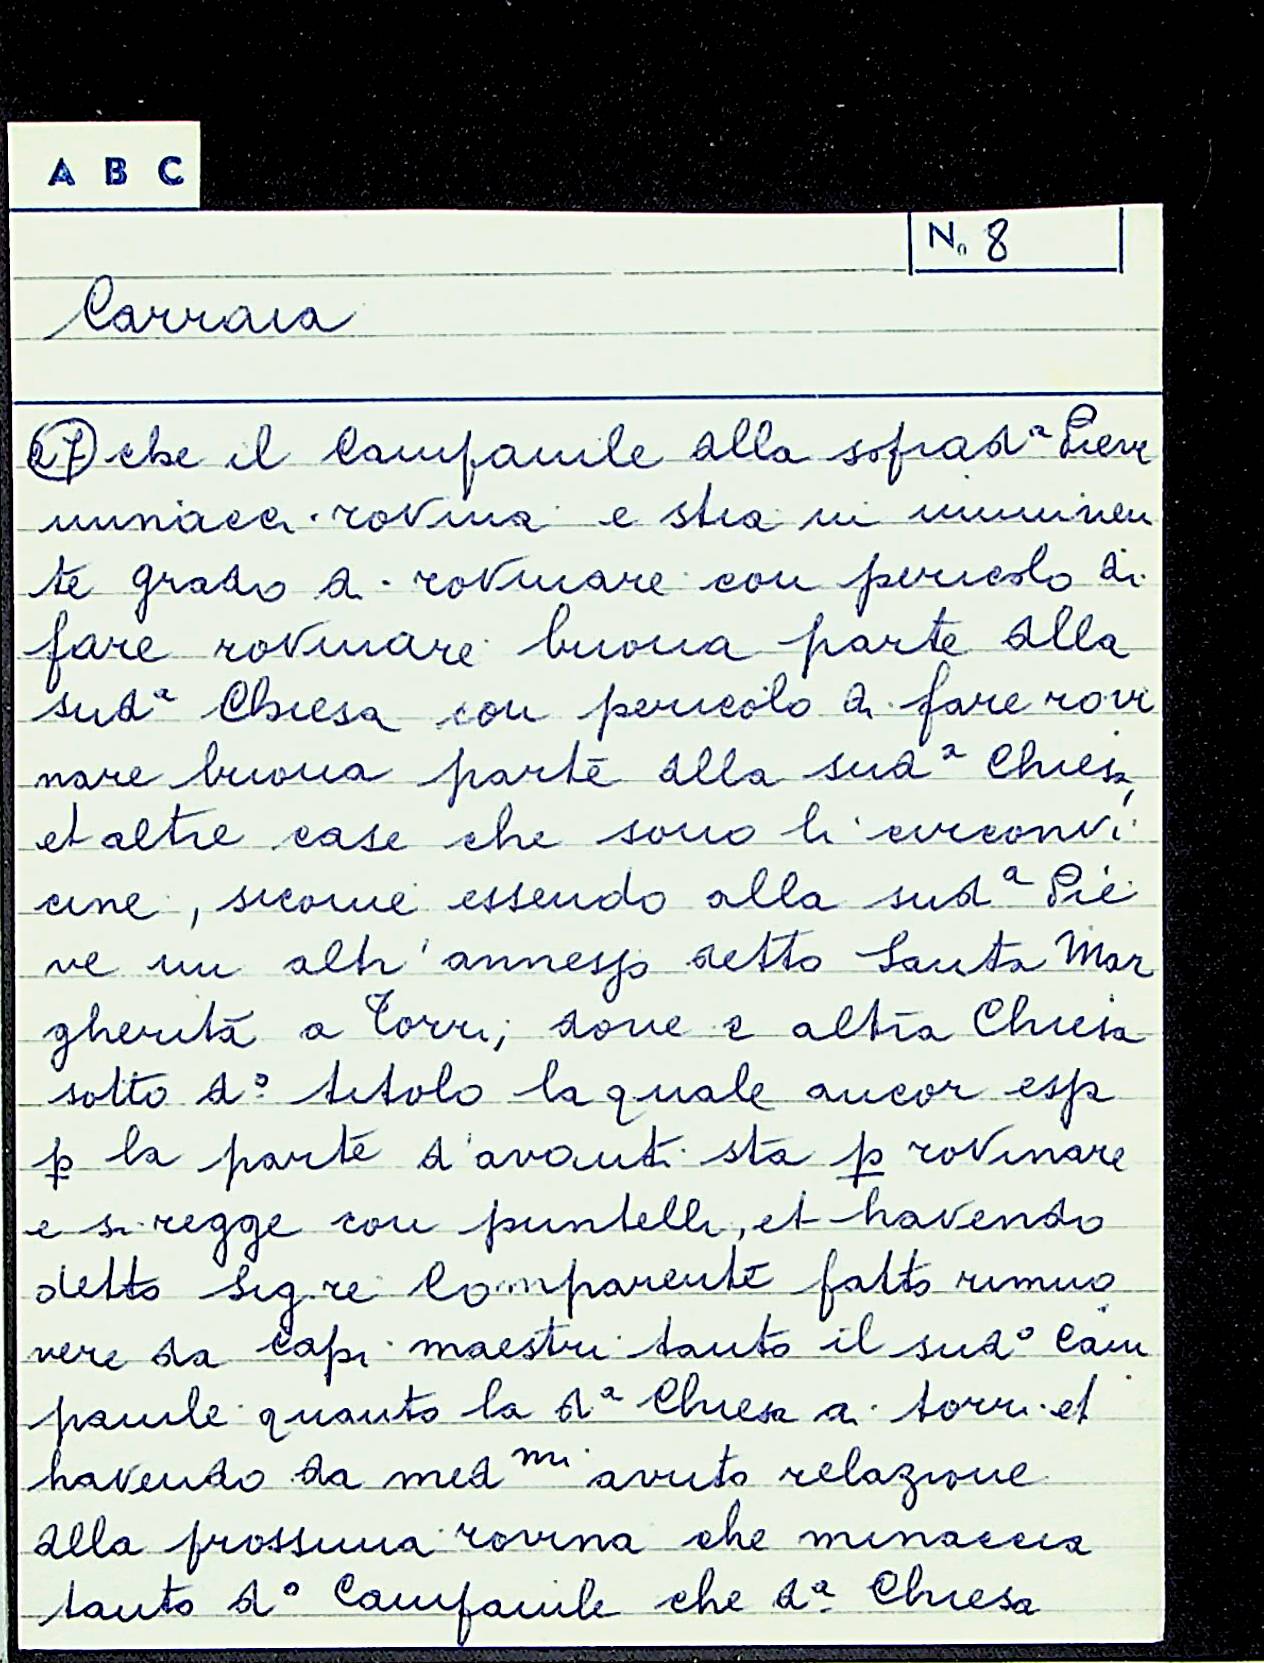 A B C
N. 8
Carraia
27 che il Campanile della soprad.ª Pieve
minacci rovina e stia in imminen
te grado di rovinare con pericolo di
fare rovinare buona parte della
sud.ª Chiesa con pericolo di fare rovi
nare buona parte della sud.ª Chiesa,
et altre case che sono li circonvi
cine, sicome essendo alla sud.ª Pie
ve un altr'annesso detto Santa Mar
gherita a Torri, dove e altra Chiesa
sotto d.º titolo la quale ancor essa
p la parte d'avanti sta p rovinare
e si regge con puntelli, et havendo
detto Sig.re Comparente fatto rimuo
vere da Capi maestri tanto il sud.º Cam
panile quanto la d.ª Chiesa di torri et
havendo da med mi avuto relazione
della prossima rovina che minaccia
tanto d.º Campanile che d.ª Chiesa